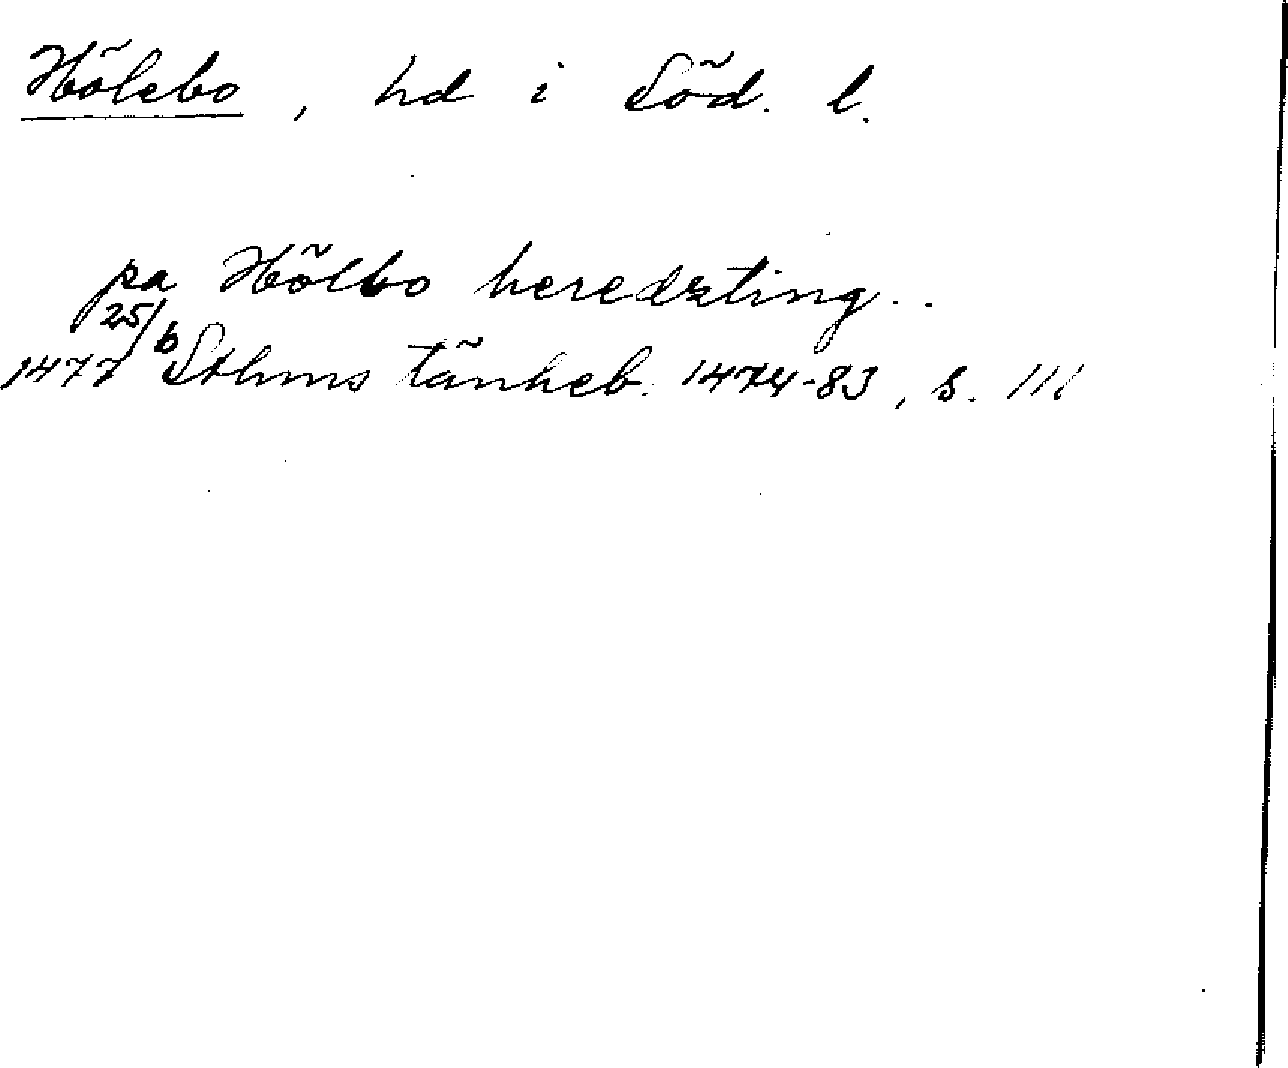 Hölebo, hd i Söd. l.
pa Hölbo heredzting..
25/6
1477 Sthms tänkeb. 1474-83, s. 111